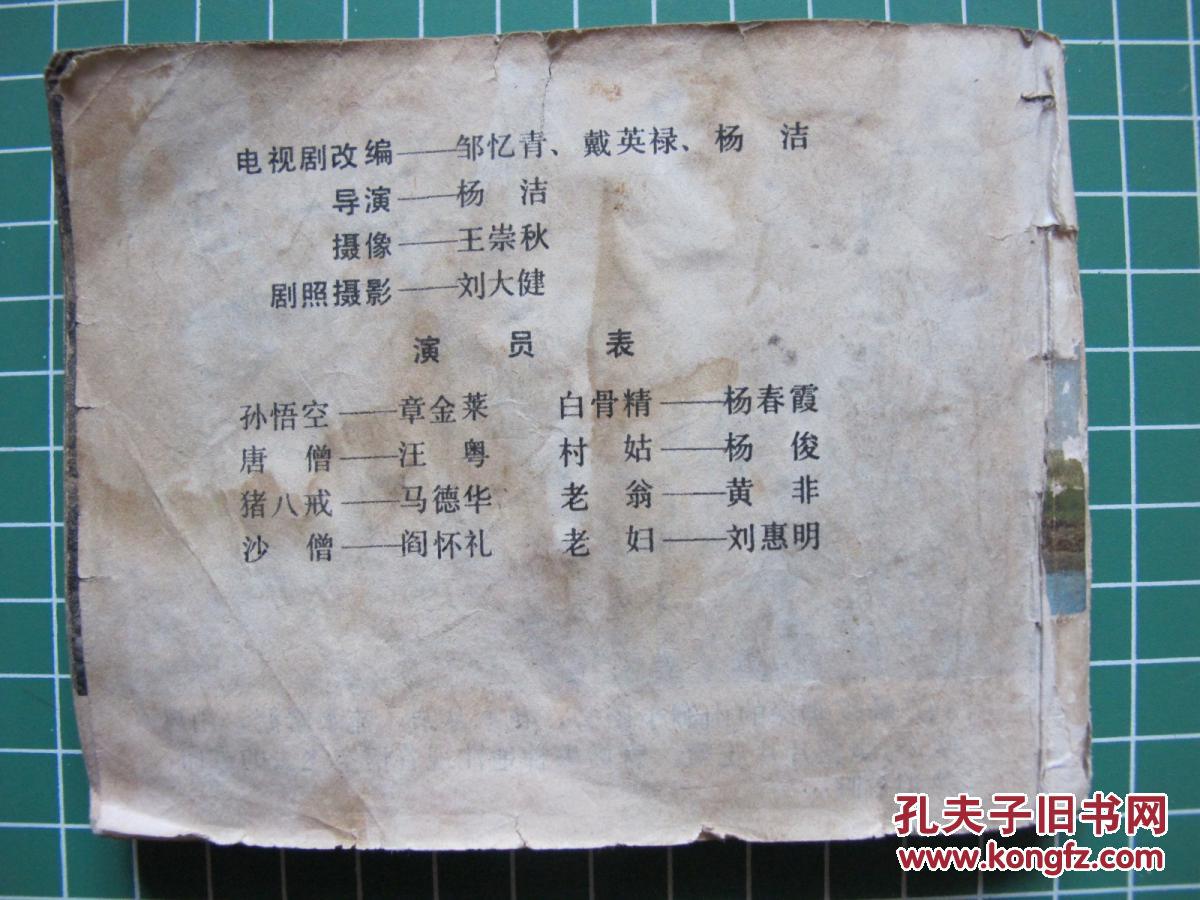 电视剧改编——邹忆青、戴英禄、杨　洁
导演——杨　洁
摄像——王崇秋
剧照摄影——刘大健
演　员　表
孙悟空——章金莱　白骨精——杨春霞
唐　僧——汪　粤　村　姑——杨　俊
猪八戒——马德华　老　翁——黄　非
沙　僧——阎怀礼　老　妇——刘惠明
孔夫子旧书网
www.kongfz.com